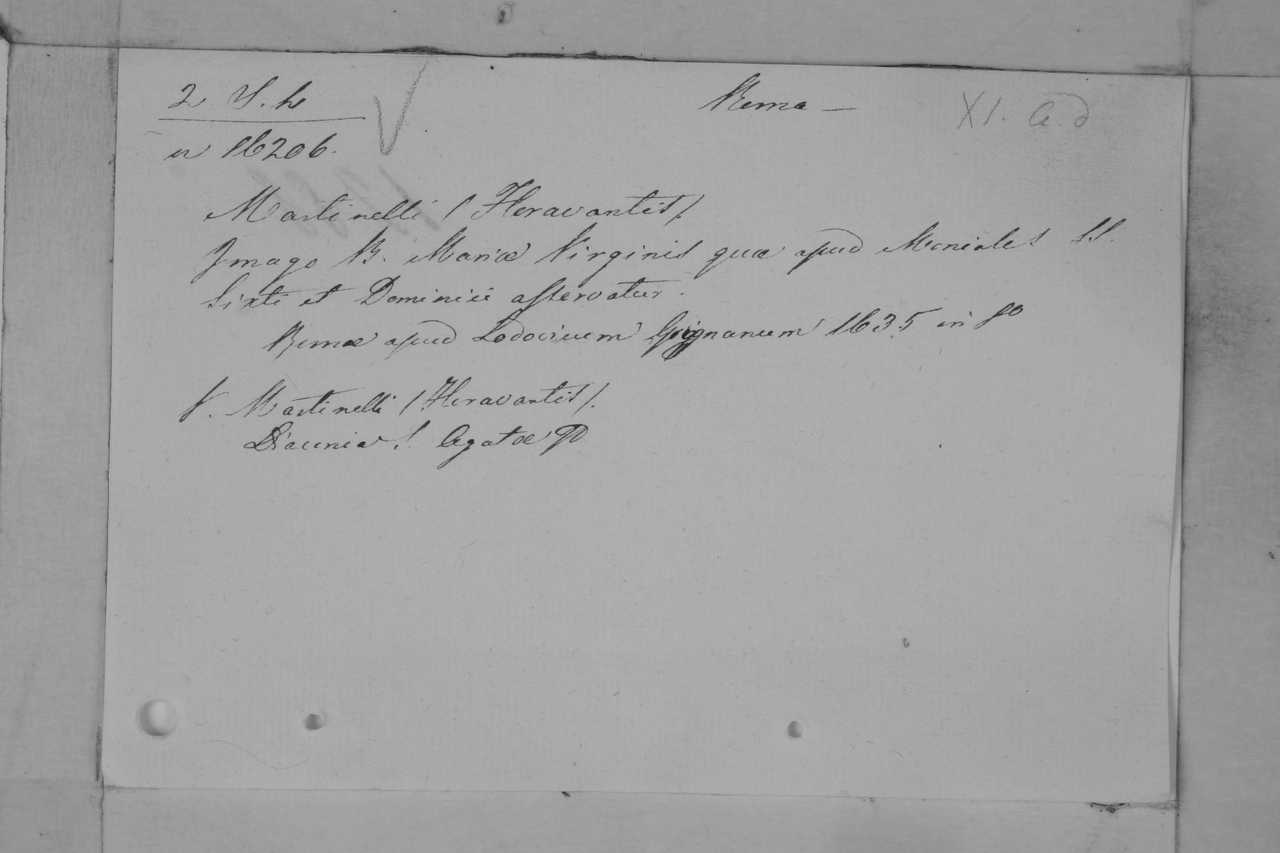 2 S. h Roma — XI. a. d
n 16206.
Martinelli (Floravantis).
Imago B. Mariæ Virginis quæ apud Moniales SS.
Sixti et Dominici asservatur.
Romæ apud Lodovicum Grignanum 1635 in 8º
V. Martinelli (Floravantis).
Diaconia S. Agatæ